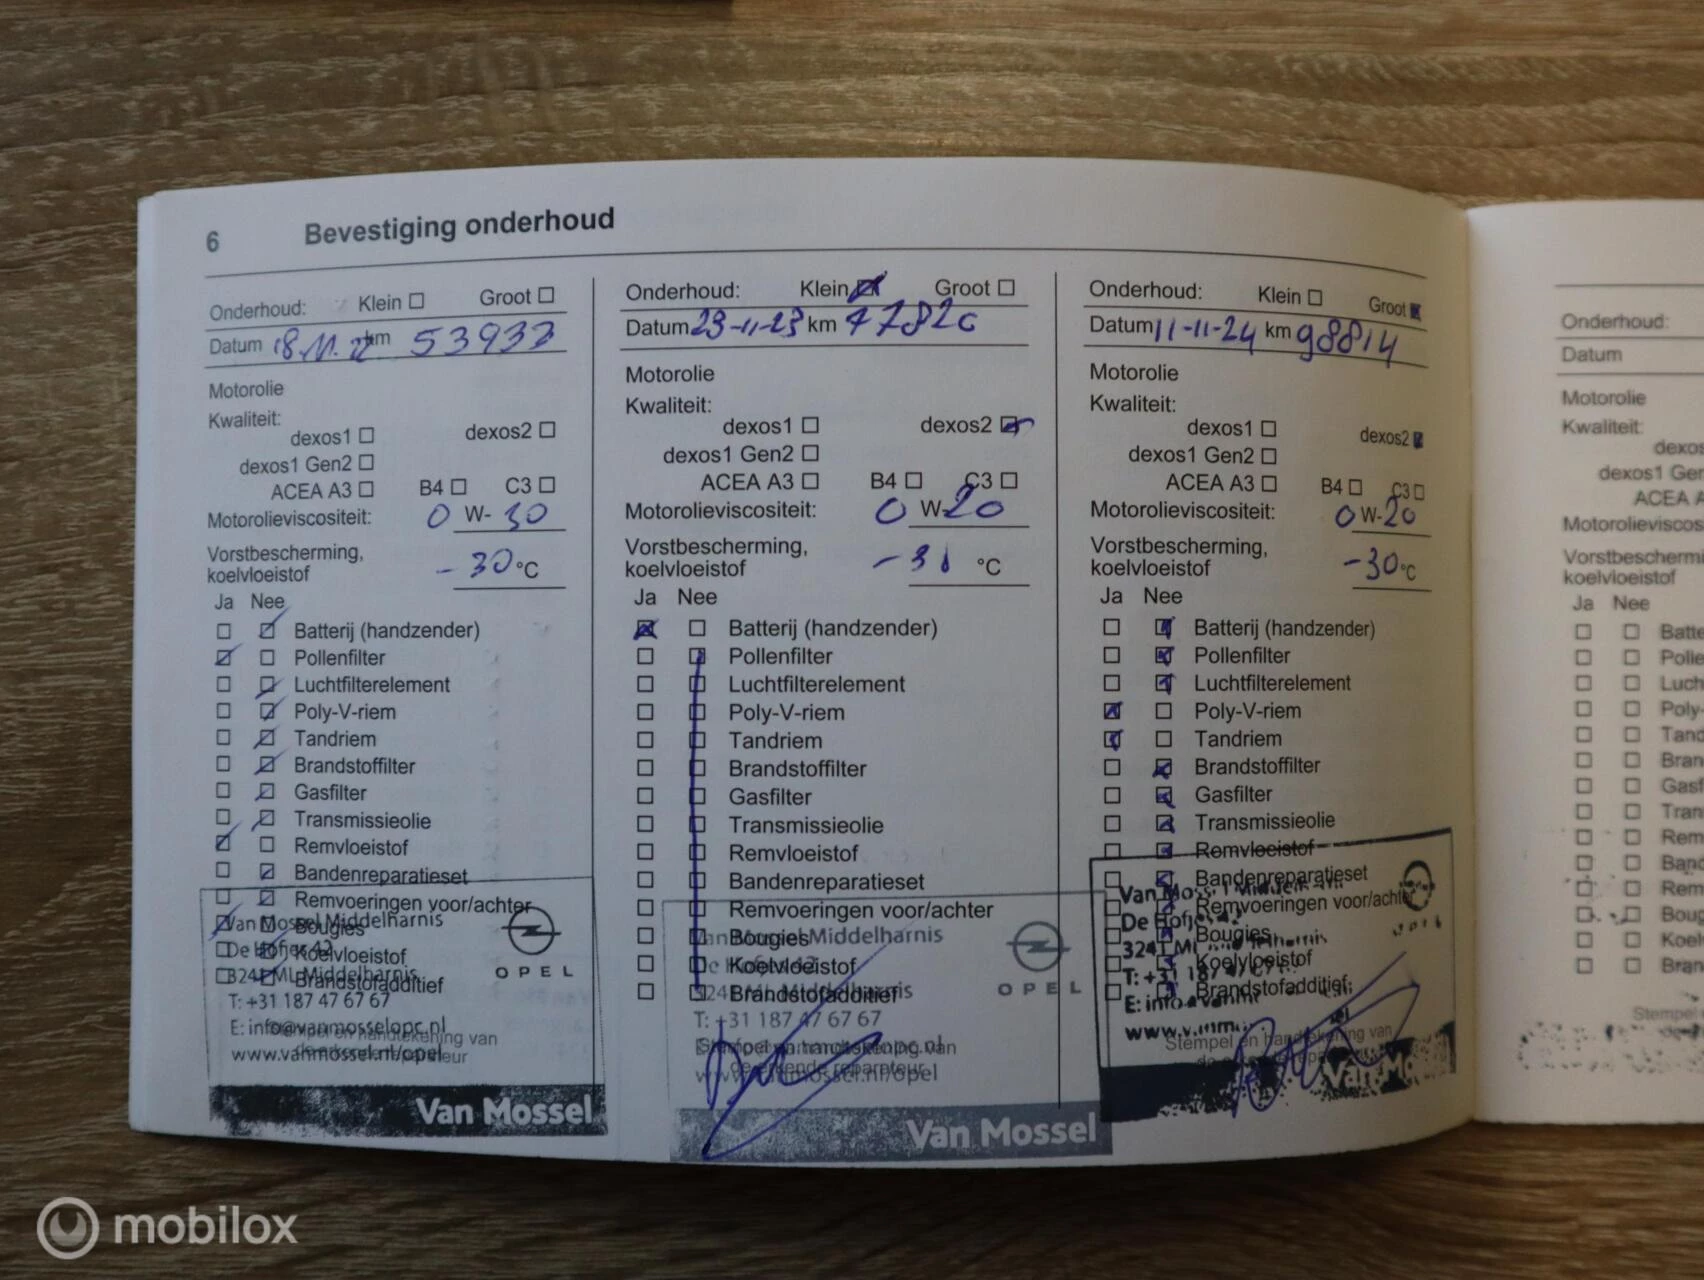 6 Bevestiging onderhoud
Onderhoud: Klein ☐ Groot ☐
Datum 18.11.22 km 53933
Motorolie
Kwaliteit:
dexos1 ☐ dexos2 ☐
dexos1 Gen2 ☐
ACEA A3 ☐ B4 ☐ C3 ☐
Motorolieviscositeit: 0 W- 30
Vorstbescherming,
koelvloeistof -30 °C
Ja Nee
Batterij (handzender)
Pollenfilter
Luchtfilterelement
Poly-V-riem
Tandriem
Brandstoffilter
Gasfilter
Transmissieolie
Remvloeistof
Bandenreparatieset
Remvoeringen voor/achter
Bougies
Koelvloeistof
Brandstofadditief
Stempel en handtekening van
de erkende reparateur
Van Mossel Middelharnis
De Hofjes 42
3241 ML Middelharnis
T: +31 187 47 67 67
E: info@vanmosselopc.nl
www.vanmossel.nl/opel
OPEL
Van Mossel
Onderhoud: Klein ☒ Groot ☐
Datum 23-11-23 km 77820
Motorolie
Kwaliteit:
dexos1 ☐ dexos2 ☒
dexos1 Gen2 ☐
ACEA A3 ☐ B4 ☐ C3 ☐
Motorolieviscositeit: 0 W- 20
Vorstbescherming,
koelvloeistof -31 °C
Ja Nee
Batterij (handzender)
Pollenfilter
Luchtfilterelement
Poly-V-riem
Tandriem
Brandstoffilter
Gasfilter
Transmissieolie
Remvloeistof
Bandenreparatieset
Remvoeringen voor/achter
Bougies
Koelvloeistof
Brandstofadditief
Stempel en handtekening van
de erkende reparateur
Van Mossel Middelharnis
De Hofjes 42
3241 ML Middelharnis
T: +31 187 47 67 67
E: info@vanmosselopc.nl
www.vanmossel.nl/opel
OPEL
Van Mossel
Onderhoud: Klein ☐ Groot ☒
Datum 11-11-24 km 98814
Motorolie
Kwaliteit:
dexos1 ☐ dexos2 ☒
dexos1 Gen2 ☐
ACEA A3 ☐ B4 ☐ C3 ☐
Motorolieviscositeit: 0 W- 20
Vorstbescherming,
koelvloeistof -30 °C
Ja Nee
Batterij (handzender)
Pollenfilter
Luchtfilterelement
Poly-V-riem
Tandriem
Brandstoffilter
Gasfilter
Transmissieolie
Remvloeistof
Bandenreparatieset
Remvoeringen voor/achter
Bougies
Koelvloeistof
Brandstofadditief
Stempel en handtekening van
Van Mossel Middelharnis
De Hofjes 42
3241 ML
T: +31 187 47
Onderhoud:
Datum
Motorolie
Kwaliteit:
dexos
dexos1 Ger
ACEA A
Motorolieviscos
Vorstbeschermi
koelvloeistof
Ja Nee
Batte
Polle
Luch
Poly-
Tand
Bran
Gasf
Tran
Rem
Band
Rem
Boug
Koel
Bran
Stempel
mobilox